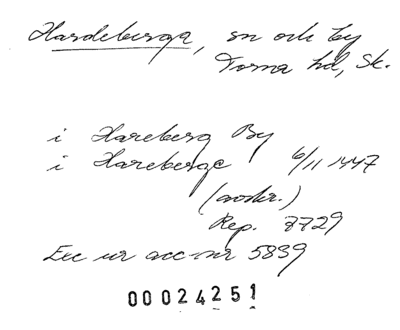 Hardeberga, sn och by
Torna hd, Sk.
i Hareberg By
i Hareberge 6/11 1447
(avskr.)
Rep. 7729
Exc ur acc-nr 5839
00024251